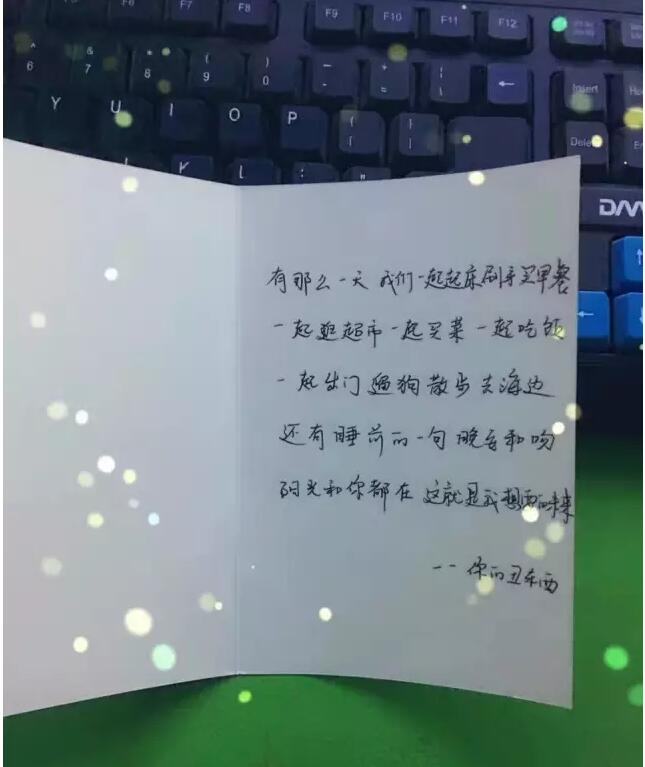 F6
F7
F8
F9
F10
F11
F12
6
&
7
*
8
(
9
)
0
Insert
Y U I O P
Delet
有那么一天 我们一起起床刷牙买早餐
一起逛超市一起买菜一起吃饭
一起出门遛狗散步去海边
还有睡前的一句晚安和吻
阳光和你都在 这就是我想要的未来
--你的丑东西